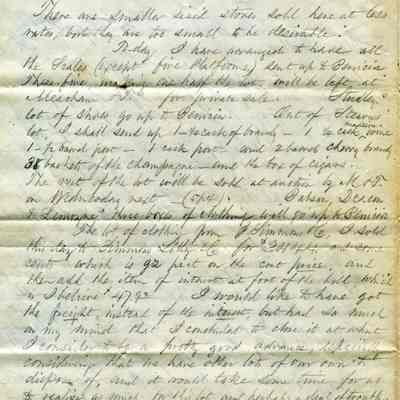 There are smaller sized stoves sold here at less
rates, but they are too small to be desirable.
To-day I have arranged to have all
the Scales (except five Platforms) sent up to Benicia
These five, making one half the lot, will be left at
Meacham for private sale.
lot of Shoes go up to Benicia. Out of Stearns
lot, I shall send up 1-½ cask of brandy - 1 ¼ cask wine
1-½ barrel port - 1 cask port and 2 barrels cherry brandy
38 baskets of the champagne - and the box of cigars.
The rest of the lot will be sold at auction by M &
on Wednesday next
These boxes of clothing will go up to Benicia
The lot of clothing from Simmons & Co, I sold
this day to Simmons & Co for
cents which is 92 per ct on the cost price, and
then add the item of interest at foot of the bill which
is I believe $47.92 I would like to have got
the freight, instead of the interest, but had so much
on my mind that I concluded to close it at what
I considered to be a pretty good advance
considering that we have other lots of our own to
dispose of, and it would take some time for us
to realize as much for the lot and perhaps